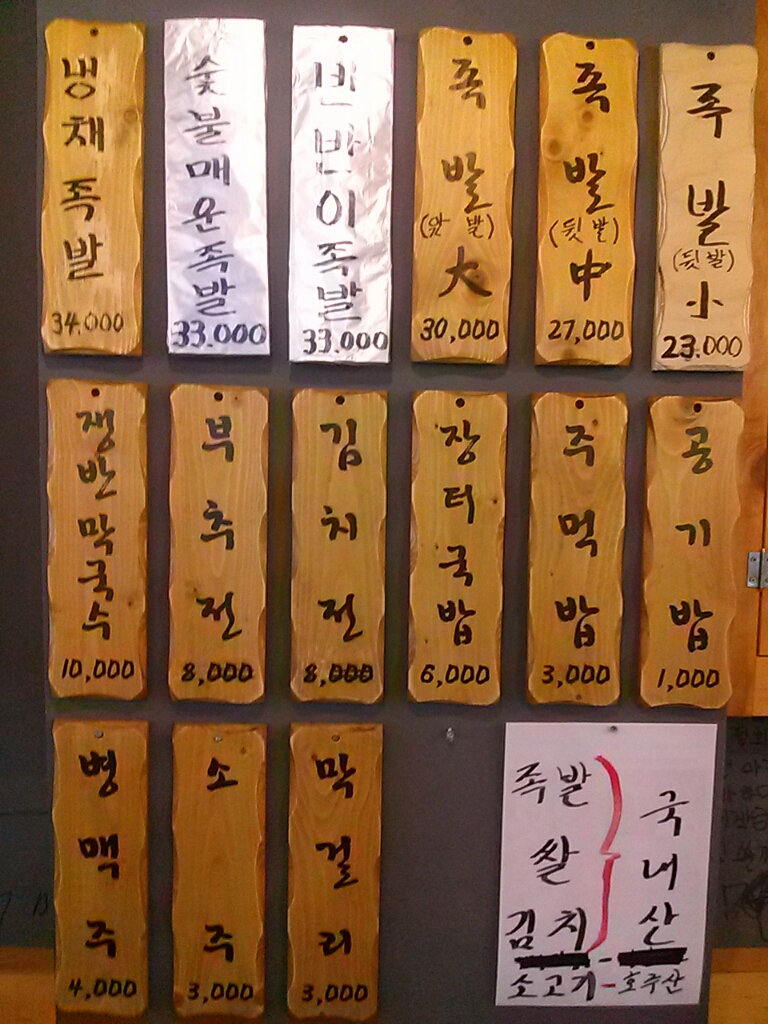 냉채족발
34.000
숯불매운족발
33.000
반반이족발
33.000
족발
(앞발)
大
30,000
족발
(뒷발)
中
27,000
족발
(뒷발)
小
23.000
쟁반막국수
10,000
부추전
8,000
김치전
8,000
장터국밥
6,000
주먹밥
3,000
공기밥
1,000
병맥주
4,000
소주
3,000
막걸리
3,000
족발
쌀
김치
국내산
소고기-호주산